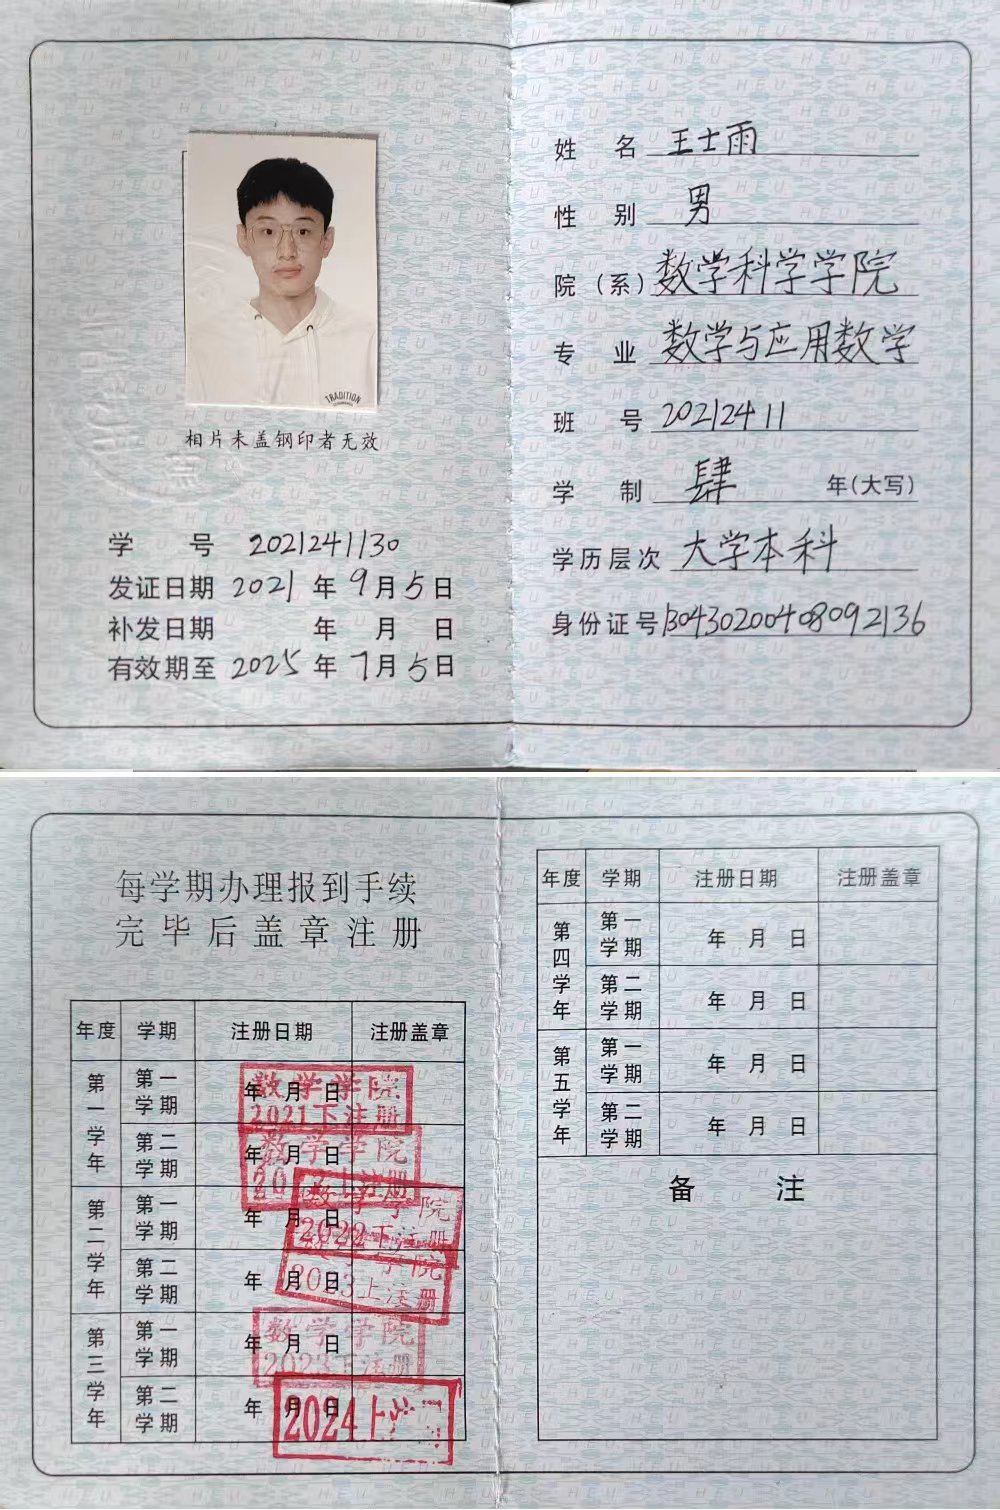 TRADITION
相片未盖钢印者无效
学 号 2021241130
发证日期 2021 年 9 月 5 日
补发日期 年 月 日
有效期至 2025 年 7 月 5 日
姓 名 王士雨
性 别 男
院（系） 数学科学学院
专 业 数学与应用数学
班 号 20212411
学 制 肆 年(大写)
学历层次 大学本科
身份证号 130430200408092136
每学期办理报到手续
完毕后盖章注册
年度 学期 注册日期 注册盖章
第一学年 第一学期 年 月 日
数学学院
2021下注册
第二学期 年 月 日
数学学院
上注册
第二学年 第一学期 年 月 日
数学学院
2022下注册
第二学期 年 月 日
学院
2023上注册
第三学年 第一学期 年 月 日
数学学院
2023下注册
第二学期 年 月 日
2024上
年度 学期 注册日期 注册盖章
第四学年 第一学期 年 月 日
第二学期 年 月 日
第五学年 第一学期 年 月 日
第二学期 年 月 日
备 注